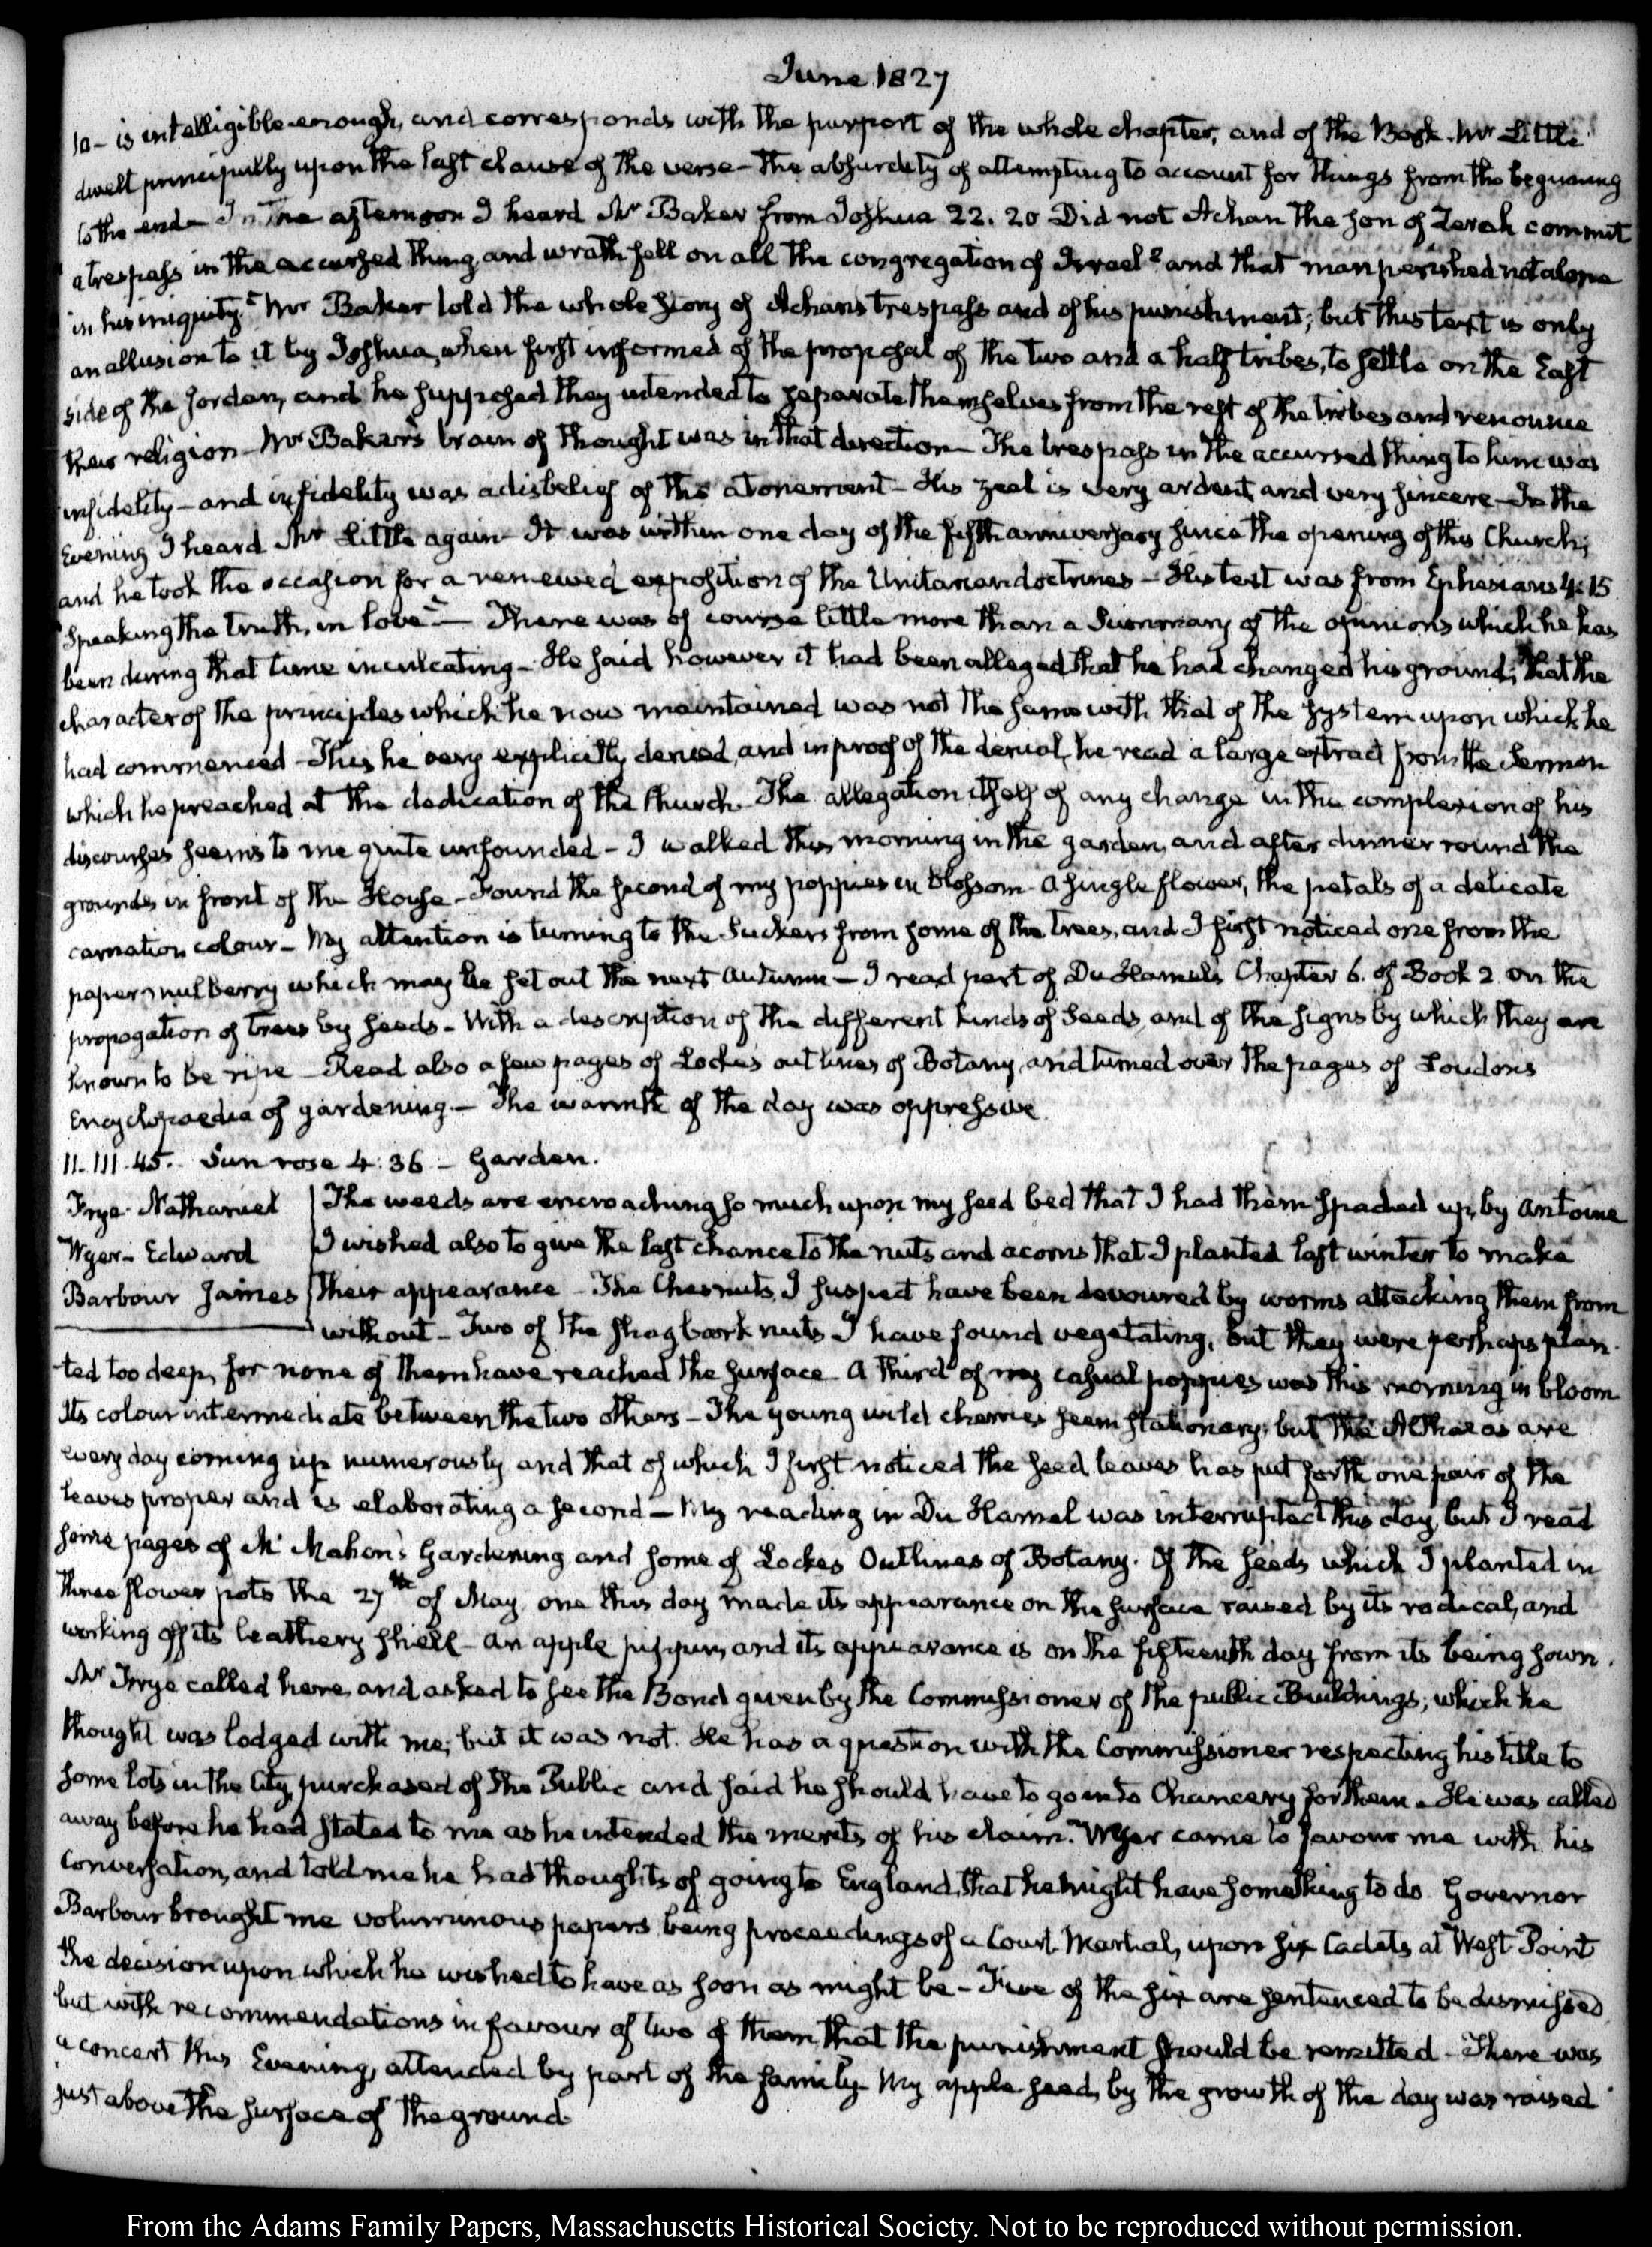 June 1827
la- is intelligible enough, and corresponds with the purport of the whole chapter, and of the Book. Mr Little
dwelt principally upon the last clause of the verse - The absurdity of attempting to account for things from the beginning
to the end - In the afternoon I heard Mr Baker from Joshua 22. 20 Did not Achan the son of Zerah commit
a trespass in the accursed thing, and wrath fell on all the congregation of Israel? and that man perished not alone
in his iniquity." Mr Baker told the whole story of Achan's trespass and of his punishment; but this text is only
an allusion to it by Joshua, when first informed of the proposal of the two and a half tribes, to settle on the East
side of the Jordan, and he supposed they intended to separate themselves from the rest of the tribes and renounce
their religion - Mr Baker's train of thought was in that direction - The trespass in the accursed thing to him was
infidelity - and infidelity was a disbelief of the atonement - His zeal is very ardent, and very sincere - In the
Evening I heard Mr Little again - It was within one day of the fifth anniversary since the opening of this Church;
and he took the occasion for a renewed exposition of the Unitarian doctrines - His text was from Ephesians 4. 15
"Speaking the truth, in love" - There was of course little more than a Summary of the opinions which he has
been during that time inculcating - He said however it had been alleged that he had changed his ground; that the
character of the principles which he now maintained was not the same with that of the system upon which he
had commenced - This he very explicitly denied, and in proof of the denial, he read a large extract from the Sermon
which he preached at the dedication of the Church. The allegation itself of any change in the complexion of his
discourses seems to me quite unfounded - I walked this morning in the garden, and after dinner round the
grounds in front of the House - Found the second of my poppies in blossom - a single flower, the petals of a delicate
carnation colour - My attention is turning to the Suckers from some of the trees, and I first noticed one from the
paper mulberry which may be set out the next Autumn - I read part of Du Hamel's Chapter 6. of Book 2 on the
propogation of trees by seeds - With a description of the different kinds of seeds, and of the signs by which they are
known to be ripe - Read also a few pages of Locke's outlines of Botany, and turned over the pages of Loudon's
Encyclopaedia of gardening. - The warmth of the day was oppressive
11. III. 45. Sun rose 4:36 - Garden.
Frye. Nathaniel
Wyer - Edward
Barbour James
The weeds are encroaching so much upon my seed bed that I had them spaded up, by Antoine
I wished also to give the last chance to the nuts and acorns that I planted last winter to make
their appearance - The Chesnuts, I suspect have been devoured by worms attacking them from
without - Two of the shagbark nuts I have found vegetating, but they were perhaps plan-
ted too deep, for none of them have reached the surface. A third of my casual poppies was this morning in bloom
Its colour intermediate between the two others - The young wild cherries seem stationary; but the Althaeas are
every day coming up numerously and that of which I first noticed the seed leaves has put forth one pair of the
leaves proper and is elaborating a second - My reading in Du Hamel was interrupted this day, but I read
some pages of McMahon's Gardening and some of Lockes Outlines of Botany. Of the seeds which I planted in
three flower pots the 27th of May, one this day made its appearance on the surface raised by its radical, and
working off its leathery shell - an apple pippin, and its appearance is on the fifteenth day from its being sown.
Mr Frye called here, and asked to see the Bond given by the Commissioner of the public Buildings; which he
thought was lodged with me; but it was not. He has a question with the Commissioner respecting his title to
some lots in the City, purchased of the Public and said he should have to go into Chancery for them. He was called
away before he had stated to me as he intended the merits of his claim. Wyer came to favour me with his
Conversation, and told me he had thoughts of going to England, that he might have something to do. Governor
Barbour brought me voluminous papers being proceedings of a Court Martial, upon six Cadets at West Point
the decision upon which he wished to have as soon as might be - Five of the six are sentenced to be dismissed
but with recommendations in favour of two of them that the punishment should be remitted - There was
a concert this Evening, attended by part of the family - My apple seed, by the growth of the day was raised
just above the surface of the ground.
From the Adams Family Papers, Massachusetts Historical Society. Not to be reproduced without permission.